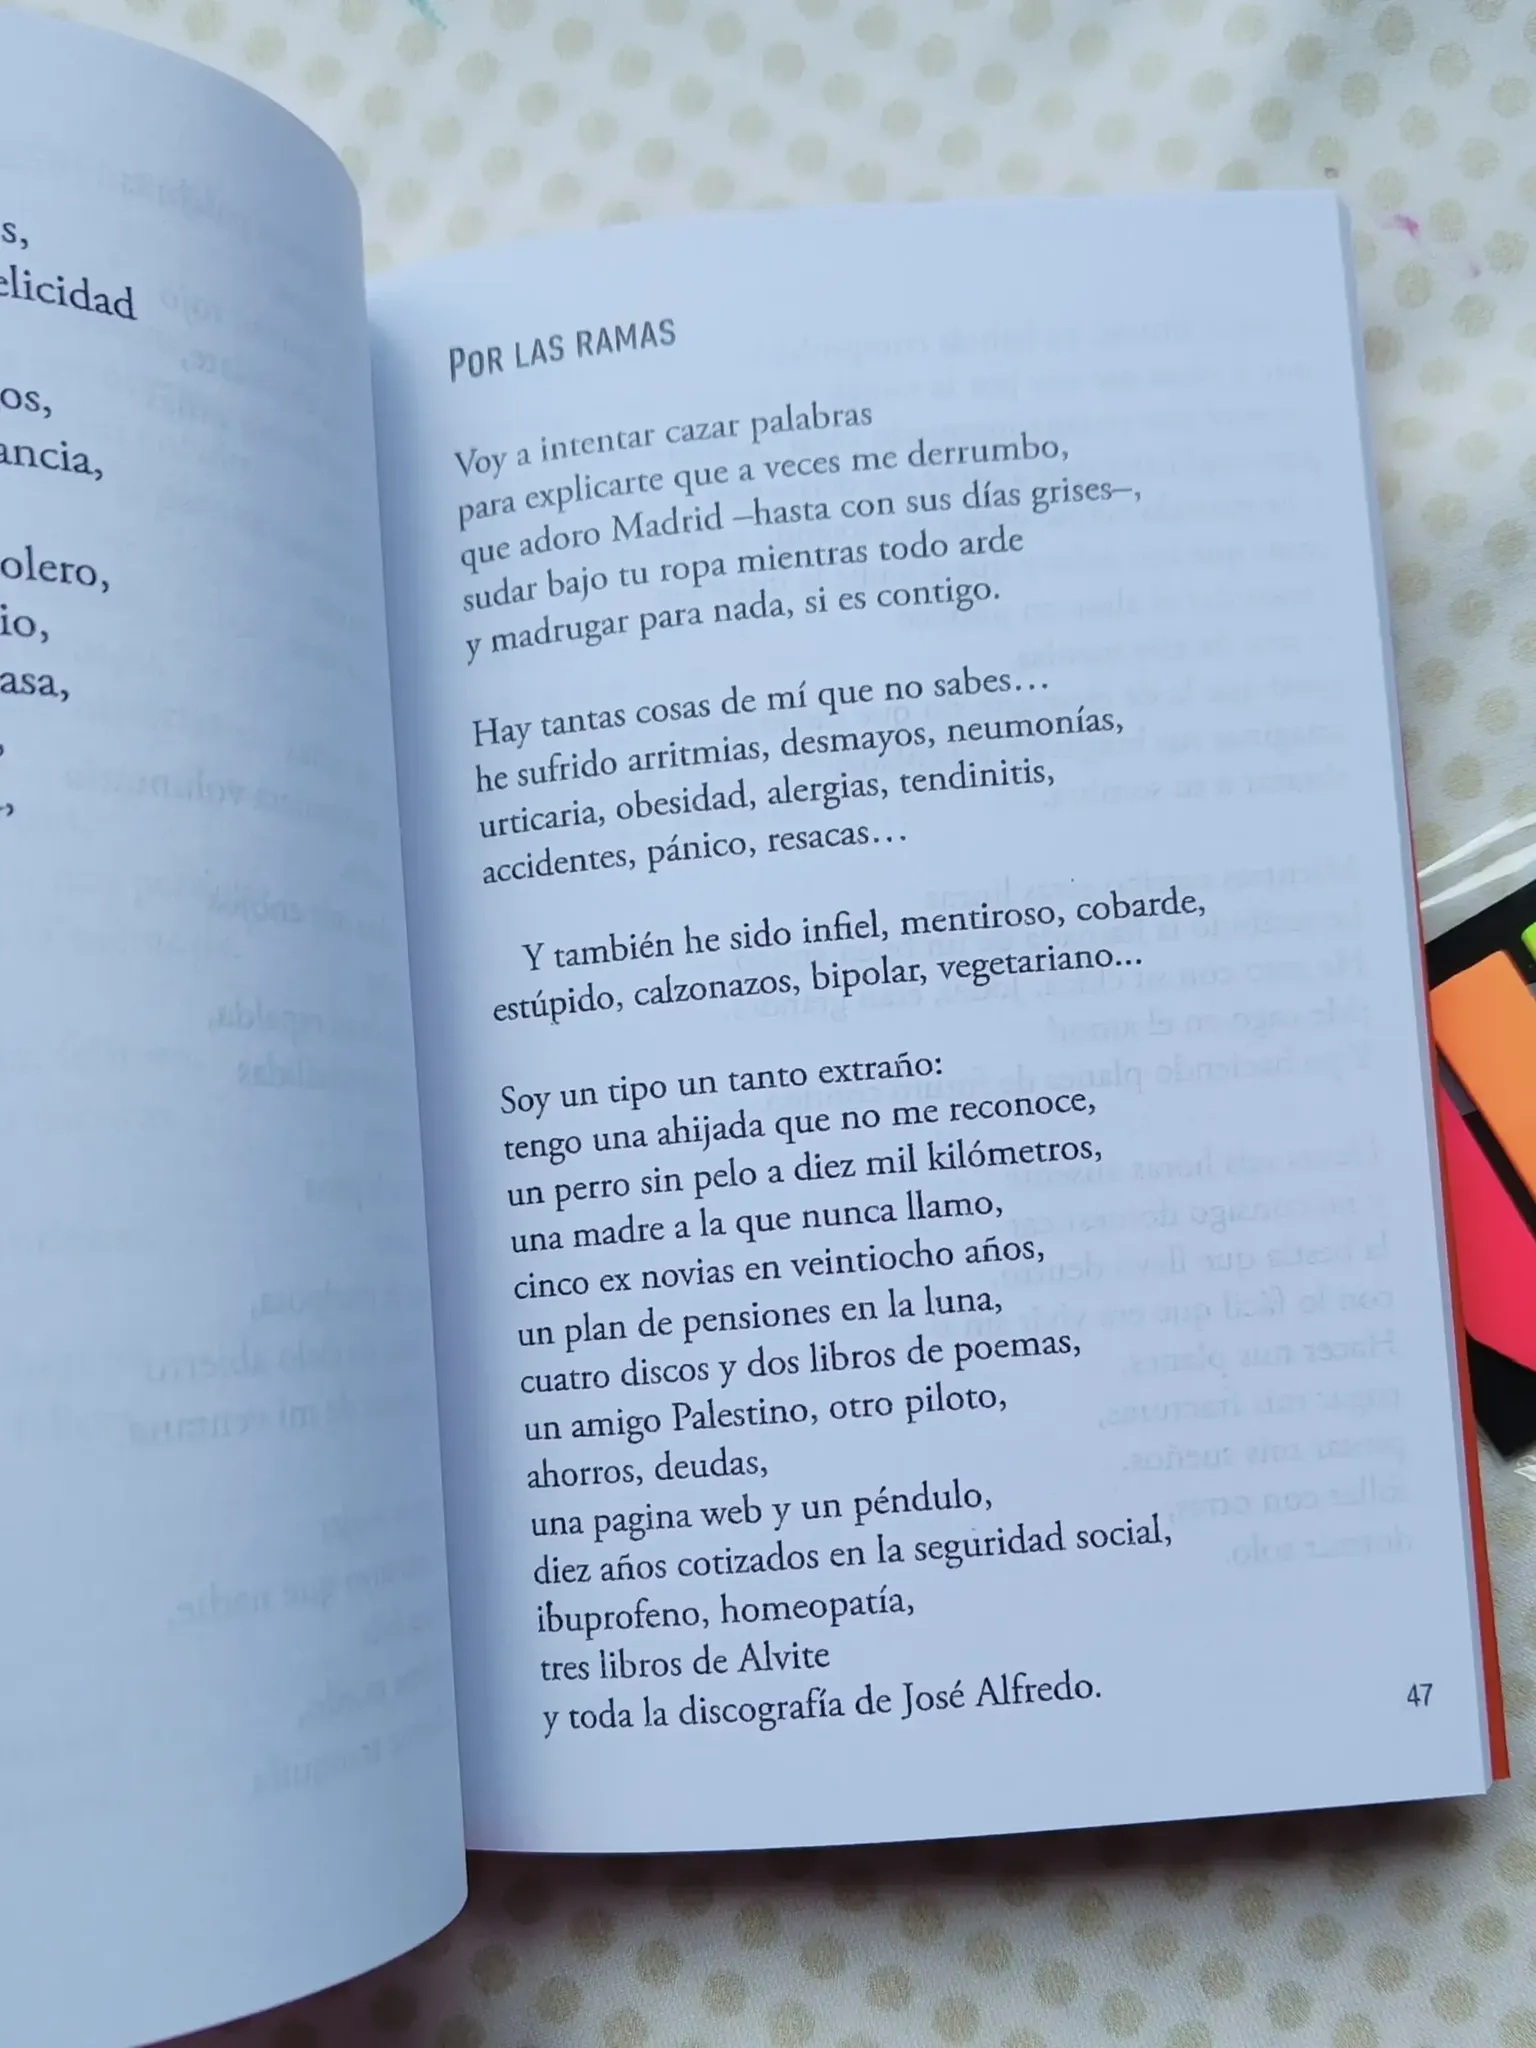 s,
elicidad
os,
ancia,
olero,
io,
asa,
,
,
POR LAS RAMAS
Voy a intentar cazar palabras
para explicarte que a veces me derrumbo,
que adoro Madrid –hasta con sus días grises–,
sudar bajo tu ropa mientras todo arde
y madrugar para nada, si es contigo.
Hay tantas cosas de mí que no sabes…
he sufrido arritmias, desmayos, neumonías,
urticaria, obesidad, alergias, tendinitis,
accidentes, pánico, resacas…
Y también he sido infiel, mentiroso, cobarde,
estúpido, calzonazos, bipolar, vegetariano...
Soy un tipo un tanto extraño:
tengo una ahijada que no me reconoce,
un perro sin pelo a diez mil kilómetros,
una madre a la que nunca llamo,
cinco ex novias en veintiocho años,
un plan de pensiones en la luna,
cuatro discos y dos libros de poemas,
un amigo Palestino, otro piloto,
ahorros, deudas,
una pagina web y un péndulo,
diez años cotizados en la seguridad social,
ibuprofeno, homeopatía,
tres libros de Alvite
y toda la discografía de José Alfredo.
47